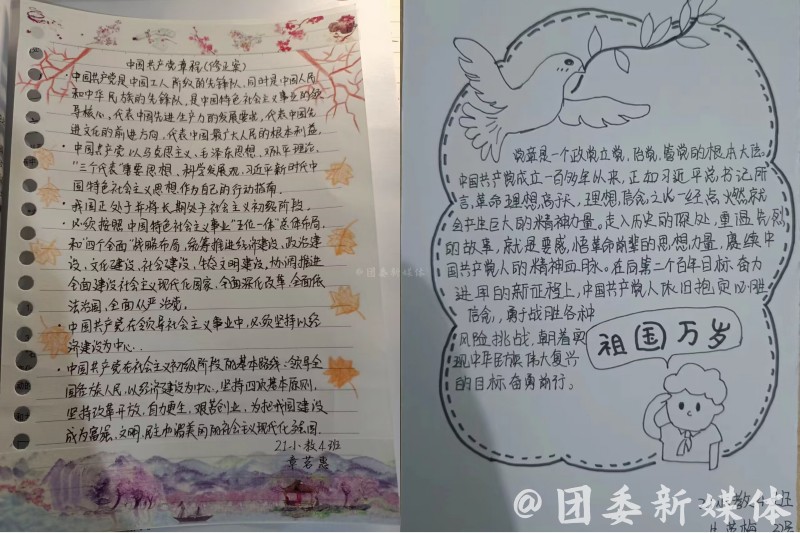 中国共产党章程(修正案)
·中国共产党是中国工人阶级的先锋队,同时是中国人民
和中华民族的先锋队,是中国特色社会主义事业的领
导核心,代表中国先进生产力的发展要求,代表中国先
进文化的前进方向,代表中国最广大人民的根本利益。
·中国共产党以马克思主义、毛泽东思想、邓小平理论、
“三个代表”重要思想、科学发展观、习近平新时代中
国特色社会主义思想作为自己的行动指南。
·我国正处于并将长期处于社会主义初级阶段。
·必须按照中国特色社会主义事业“五位一体”总体布局
和“四个全面”战略布局,统筹推进经济建设、政治建
设、文化建设、社会建设、生态文明建设,协调推进
全面建设社会主义现代化国家、全面深化改革、全面依
法治国、全面从严治党。
·中国共产党在领导社会主义事业中,必须坚持以经
济建设为中心..
·中国共产党在社会主义初级阶段的基本路线:领导全
国各族人民,以经济建设为中心,坚持四项基本原则,
坚持改革开放,自力更生,艰苦创业,为把我国建设
成为富强、文明、民主和谐美丽的社会主义现代化强国。
21小教4班
章若惠
@团委新媒体
党章是一个政党立党、治党、管党的根本大法。
中国共产党成立一百多年以来,正如习近平总书记所
言,革命理想高于天,理想,信念之火一经点燃就
会产生巨大的精神力量。走入历史的深处,重温先烈
的故事,就是要感悟革命前辈的思想力量,赓续中
国共产党人的精神血脉。在向第二个百年目标奋力
进军的新征程上,中国共产党人依旧抱定必胜
信念,勇于战胜各种
风险挑战,朝着实
现中华民族伟大复兴
的目标奋勇前行。
祖国万岁
教4班
梅
@团委新媒体